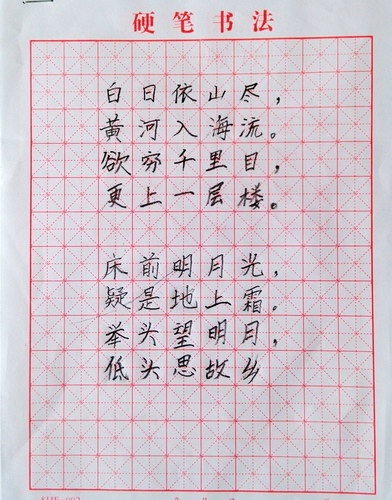 硬笔书法
白日依山尽，
黄河入海流。
欲穷千里目，
更上一层楼。
床前明月光，
疑是地上霜。
举头望明月，
低头思故乡